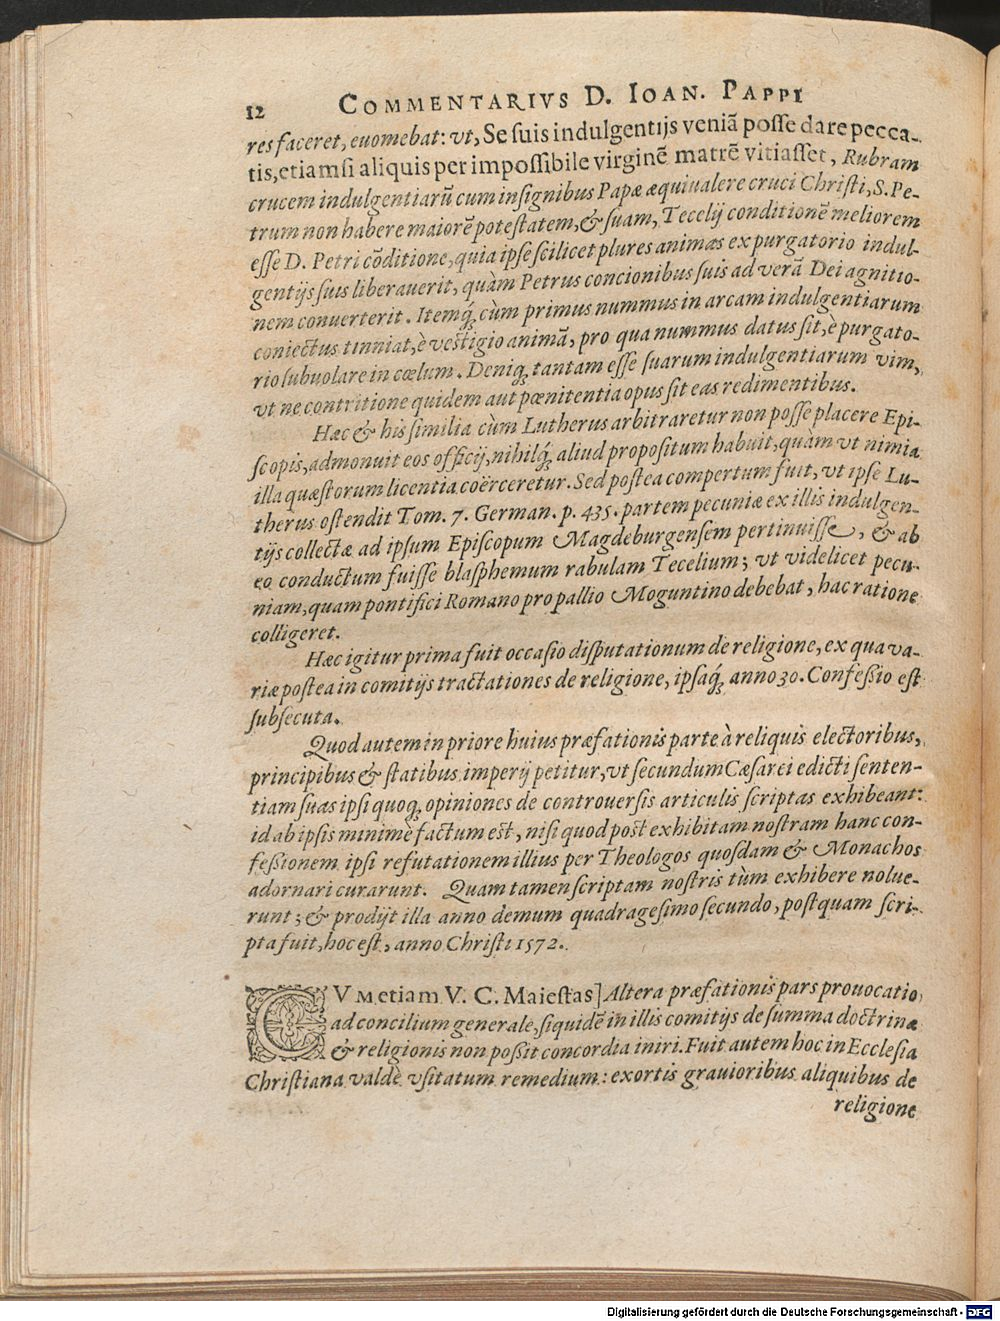 12 COMMENTARIVS D. IOAN. PAPPI
res faceret, euomebat: vt, Se suis indulgentijs veniã posse dare pecca-
tis, etiamsi aliquis per impossibile virginẽ matrẽ vitiasset, Rubram
crucem indulgentiarũ cum insignibus Papæ æquiualere cruci Christi, S. Pe-
trum non habere maiorẽ potestatem, & suam, Tecelij conditionẽ meliorem
esse D. Petri cõditione, quia ipse scilicet plures animas ex purgatorio indul-
gentijs suis liberauerit, quàm Petrus concionibus suis ad verã Dei agnitio-
nem conuerterit. Itemq́; cùm primus nummus in arcam indulgentiarum
coniectus tinniat, è vestigio animã, pro qua nummus datus sit, è purgato-
rio subuolare in cœlum. Deniq; tantam esse suarum indulgentiarum vim,
vt ne contritione quidem aut pœnitentia opus sit eas redimentibus.
Hæc & his similia cùm Lutherus arbitraretur non posse placere Epi-
scopis, admonuit eos officij, nihilq́; aliud propositum habuit, quàm vt nimia
illa quæstorum licentia coërceretur. Sed postea compertum fuit, vt ipse Lu-
therus ostendit Tom. 7. German. p. 435. partem pecuniæ ex illis indulgen-
tijs collectæ ad ipsum Episcopum Magdeburgensem pertinuisse, & ab
eo conductum fuisse blasphemum rabulam Tecelium; vt videlicet pecu-
niam, quam pontifici Romano pro pallio Moguntino debebat, hac ratione
colligeret.
Hæc igitur prima fuit occasio disputationum de religione, ex qua va-
riæ postea in comitijs tractationes de religione, ipsaq́; anno 30. Confeßio est
subsecuta.
Quod autem in priore huius præfationis parte à reliquis electoribus,
principibus & statibus imperij petitur, vt secundum Cæsarei edicti senten-
tiam suas ipsi quoq; opiniones de controuersis articulis scriptas exhibeant:
id ab ipsis minimè factum est, nisi quod post exhibitam nostram hanc con-
feßionem ipsi refutationem illius per Theologos quosdam & Monachos
adornari curarunt. Quam tamen scriptam nostris tùm exhibere nolue-
runt; & prodijt illa anno demum quadragesimo secundo, postquam scri-
pta fuit, hoc est, anno Christi 1572.
CVM etiam V. C. Maiestas] Altera præfationis pars prouocatio
ad concilium generale, siquidẽ in illis comitijs de summa doctrinæ
& religionis non poßit concordia iniri. Fuit autem hoc in Ecclesia
Christiana valdè vsitatum remedium: exortis grauioribus aliquibus de
religione
Digitalisierung gefördert durch die Deutsche Forschungsgemeinschaft - DFG